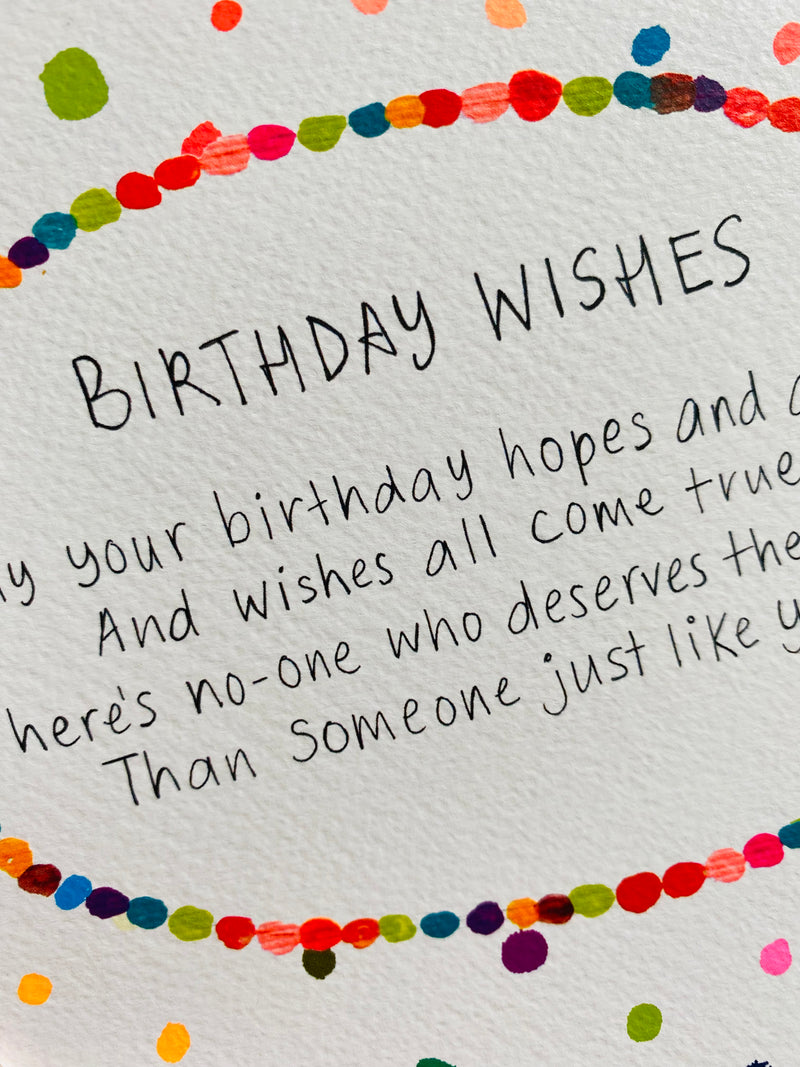 BIRTHDAY WISHES
your birthday hopes and
And wishes all come true
no-one who deserves
Than someone just like